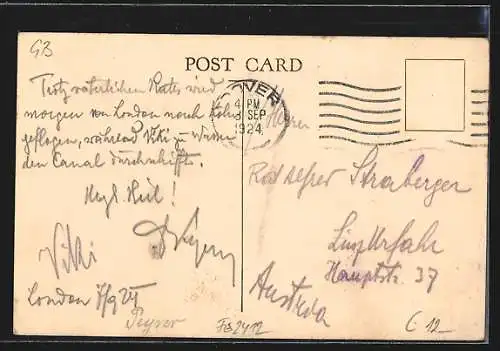 GB
POST CARD
DOVER
4 PM
SEP
1924
Trotz väterlichen Rates wird
morgen von London nach Köln
geflogen, während Viki zu Wasser
den Canal durchschifft.
Heil!
Viki
London 7/9 24
Peyrer
Fs2412
Herrn
Rod Alfred Straberger
Linz Urfahr
Hauptstr. 37
Austria
C 12